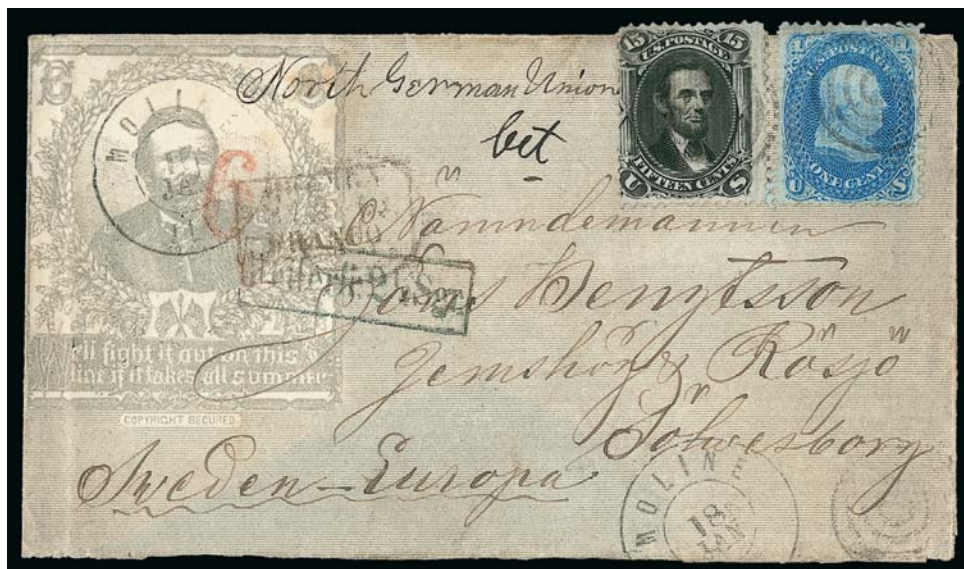 North German Union
bet
15 U.S. POSTAGE 15
FIFTEEN CENTS
U S
1 U.S. POSTAGE 1
ONE CENT
U S
MOLI
6
BREMEN
FRANCO
Nämndemannen
Jöns Bengtsson
Jemshög & Rösjö
Sölwesborg
Sweden - Europa
We'll fight it out on this
line if it takes all summer
COPYRIGHT SECURED.
MOLINE
18
JAN